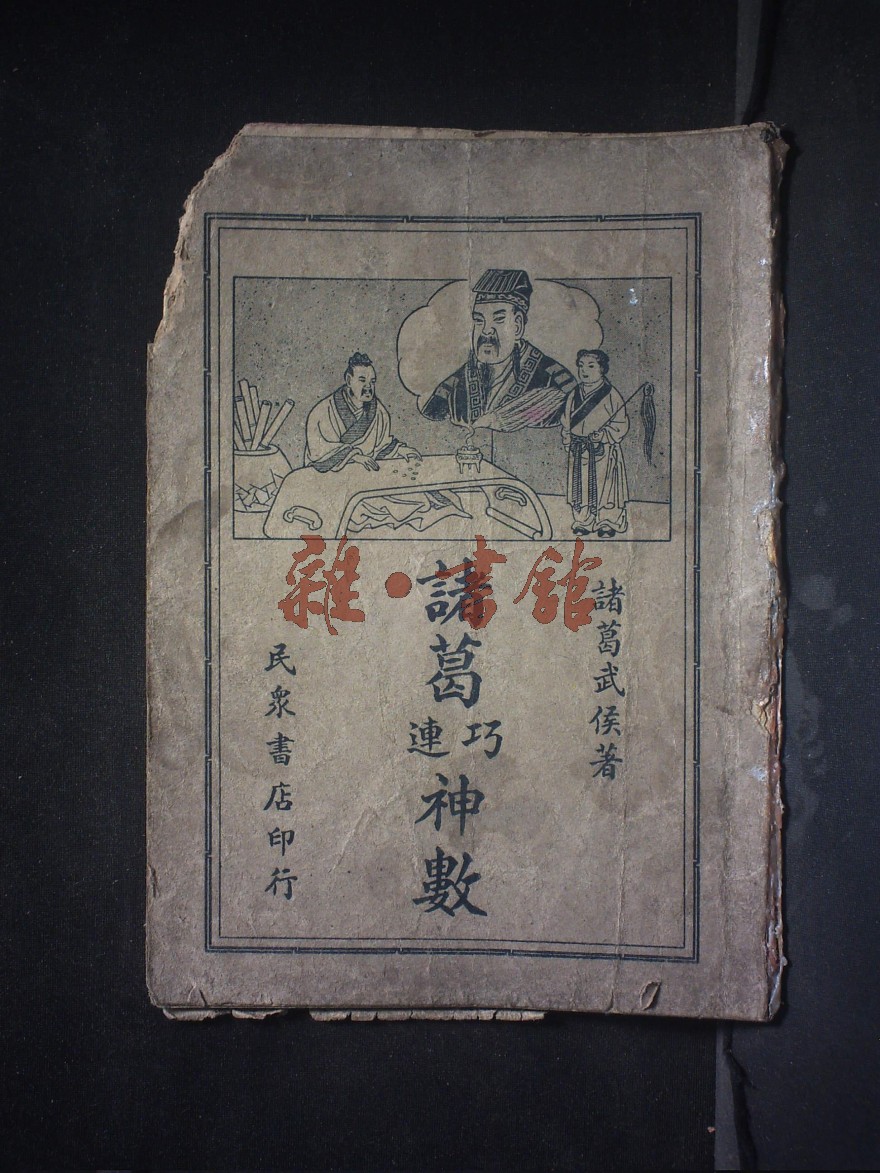 諸葛武侯著
諸葛
巧連
神數
民衆書店印行
雜·書館